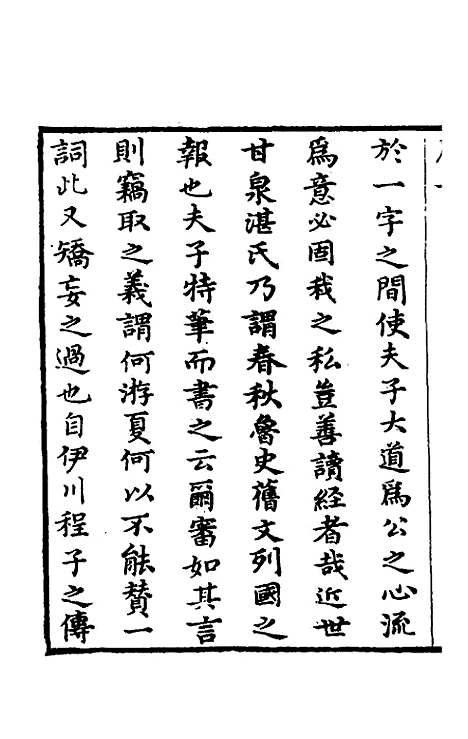 於一字之間使夫子大道爲公之心流
爲意必固我之私豈善讀經者哉近世
甘泉湛氏乃謂春秋魯史舊文列國之
報也夫子特筆而書之云爾審如其言
則竊取之義謂何游夏何以不能賛一
詞此又矯妄之過也自伊川程子之傳